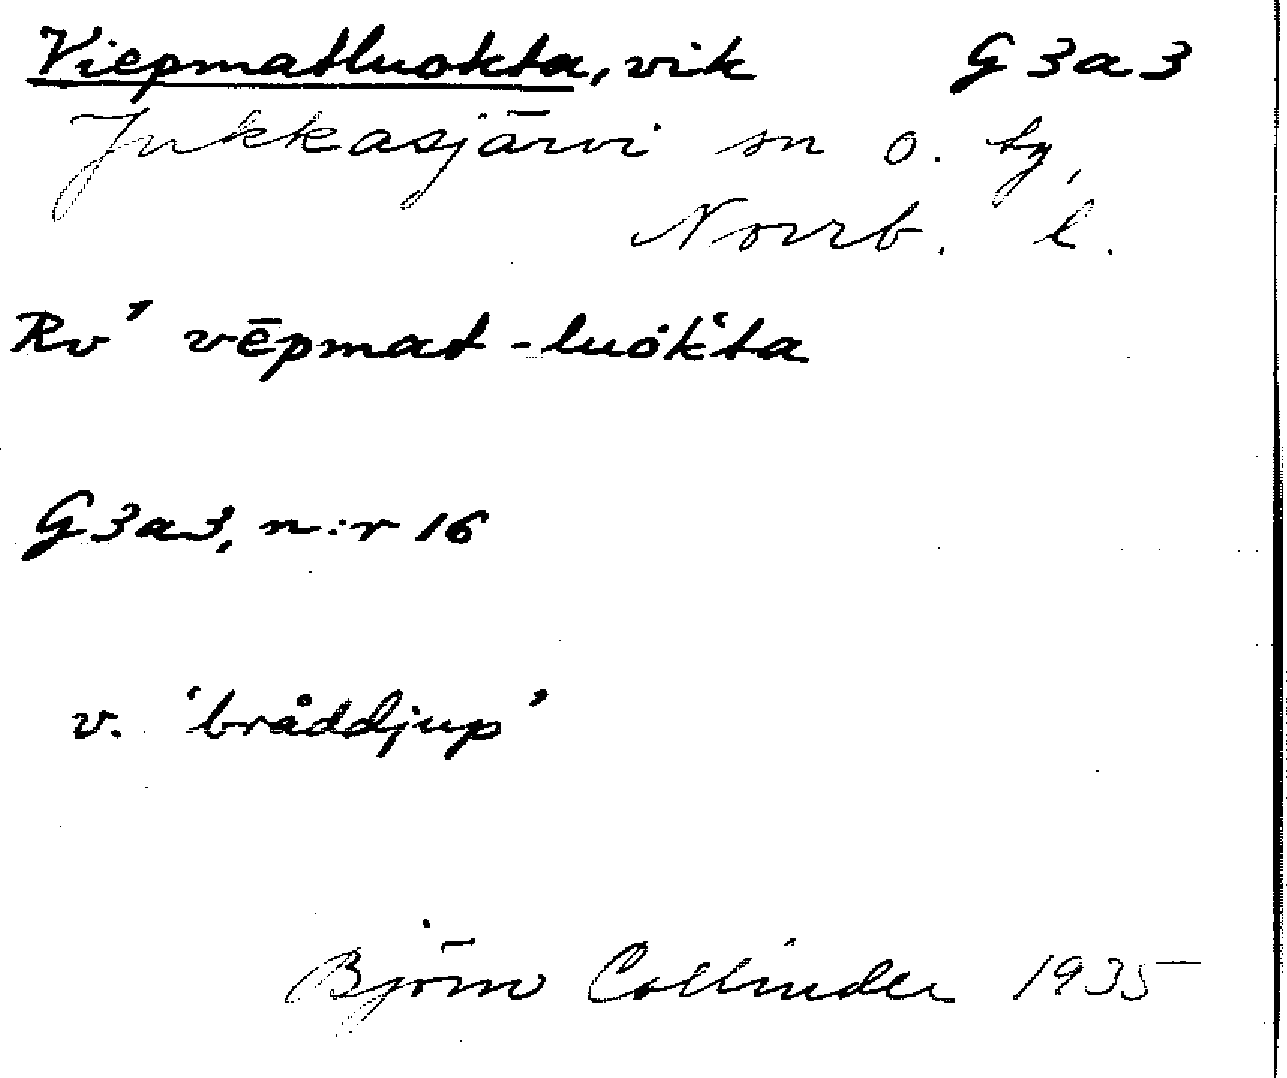 Viepmatluokta, vik G3a3
Jukkasjärvi sn o. tg,
Norrb. l.
Rv’ vēpmat-luok̀ta
G3a3, n:r 16
v. ‘bråddjup’
Björn Collinder 1935